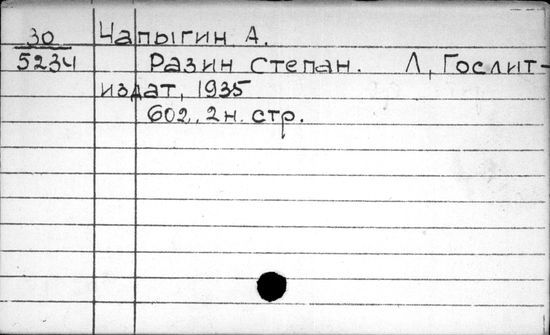 30 Чапыгин А.
5234 Разин Степан. Л, Гослит-
издат, 1935
602, 2 н. стр.